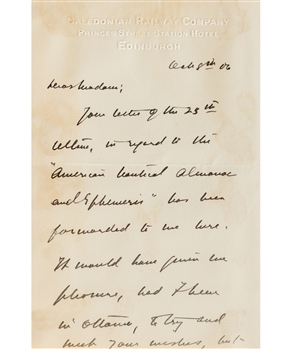 CALEDONIAN RAILWAY COMPANY
PRINCES STREET STATION HOTEL
EDINBURGH
Oct 8th 06
Dear Madam;
Your letter of the 25th
ultimo, in regard to the
"American Nautical Almanac
and Ephemeris" has been
forwarded to me here.
It would have given me
pleasure, had I been
in Ottawa, to try and
meet your wishes, but